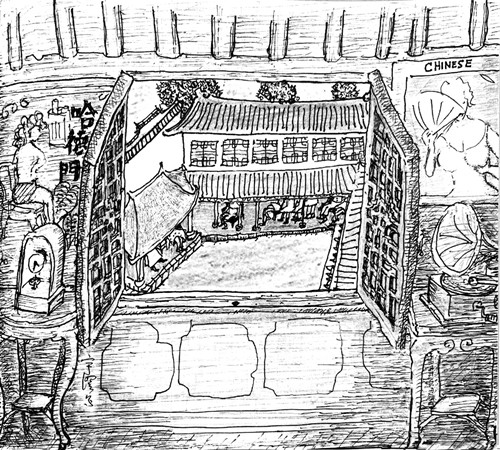 CHINESE
哈德門